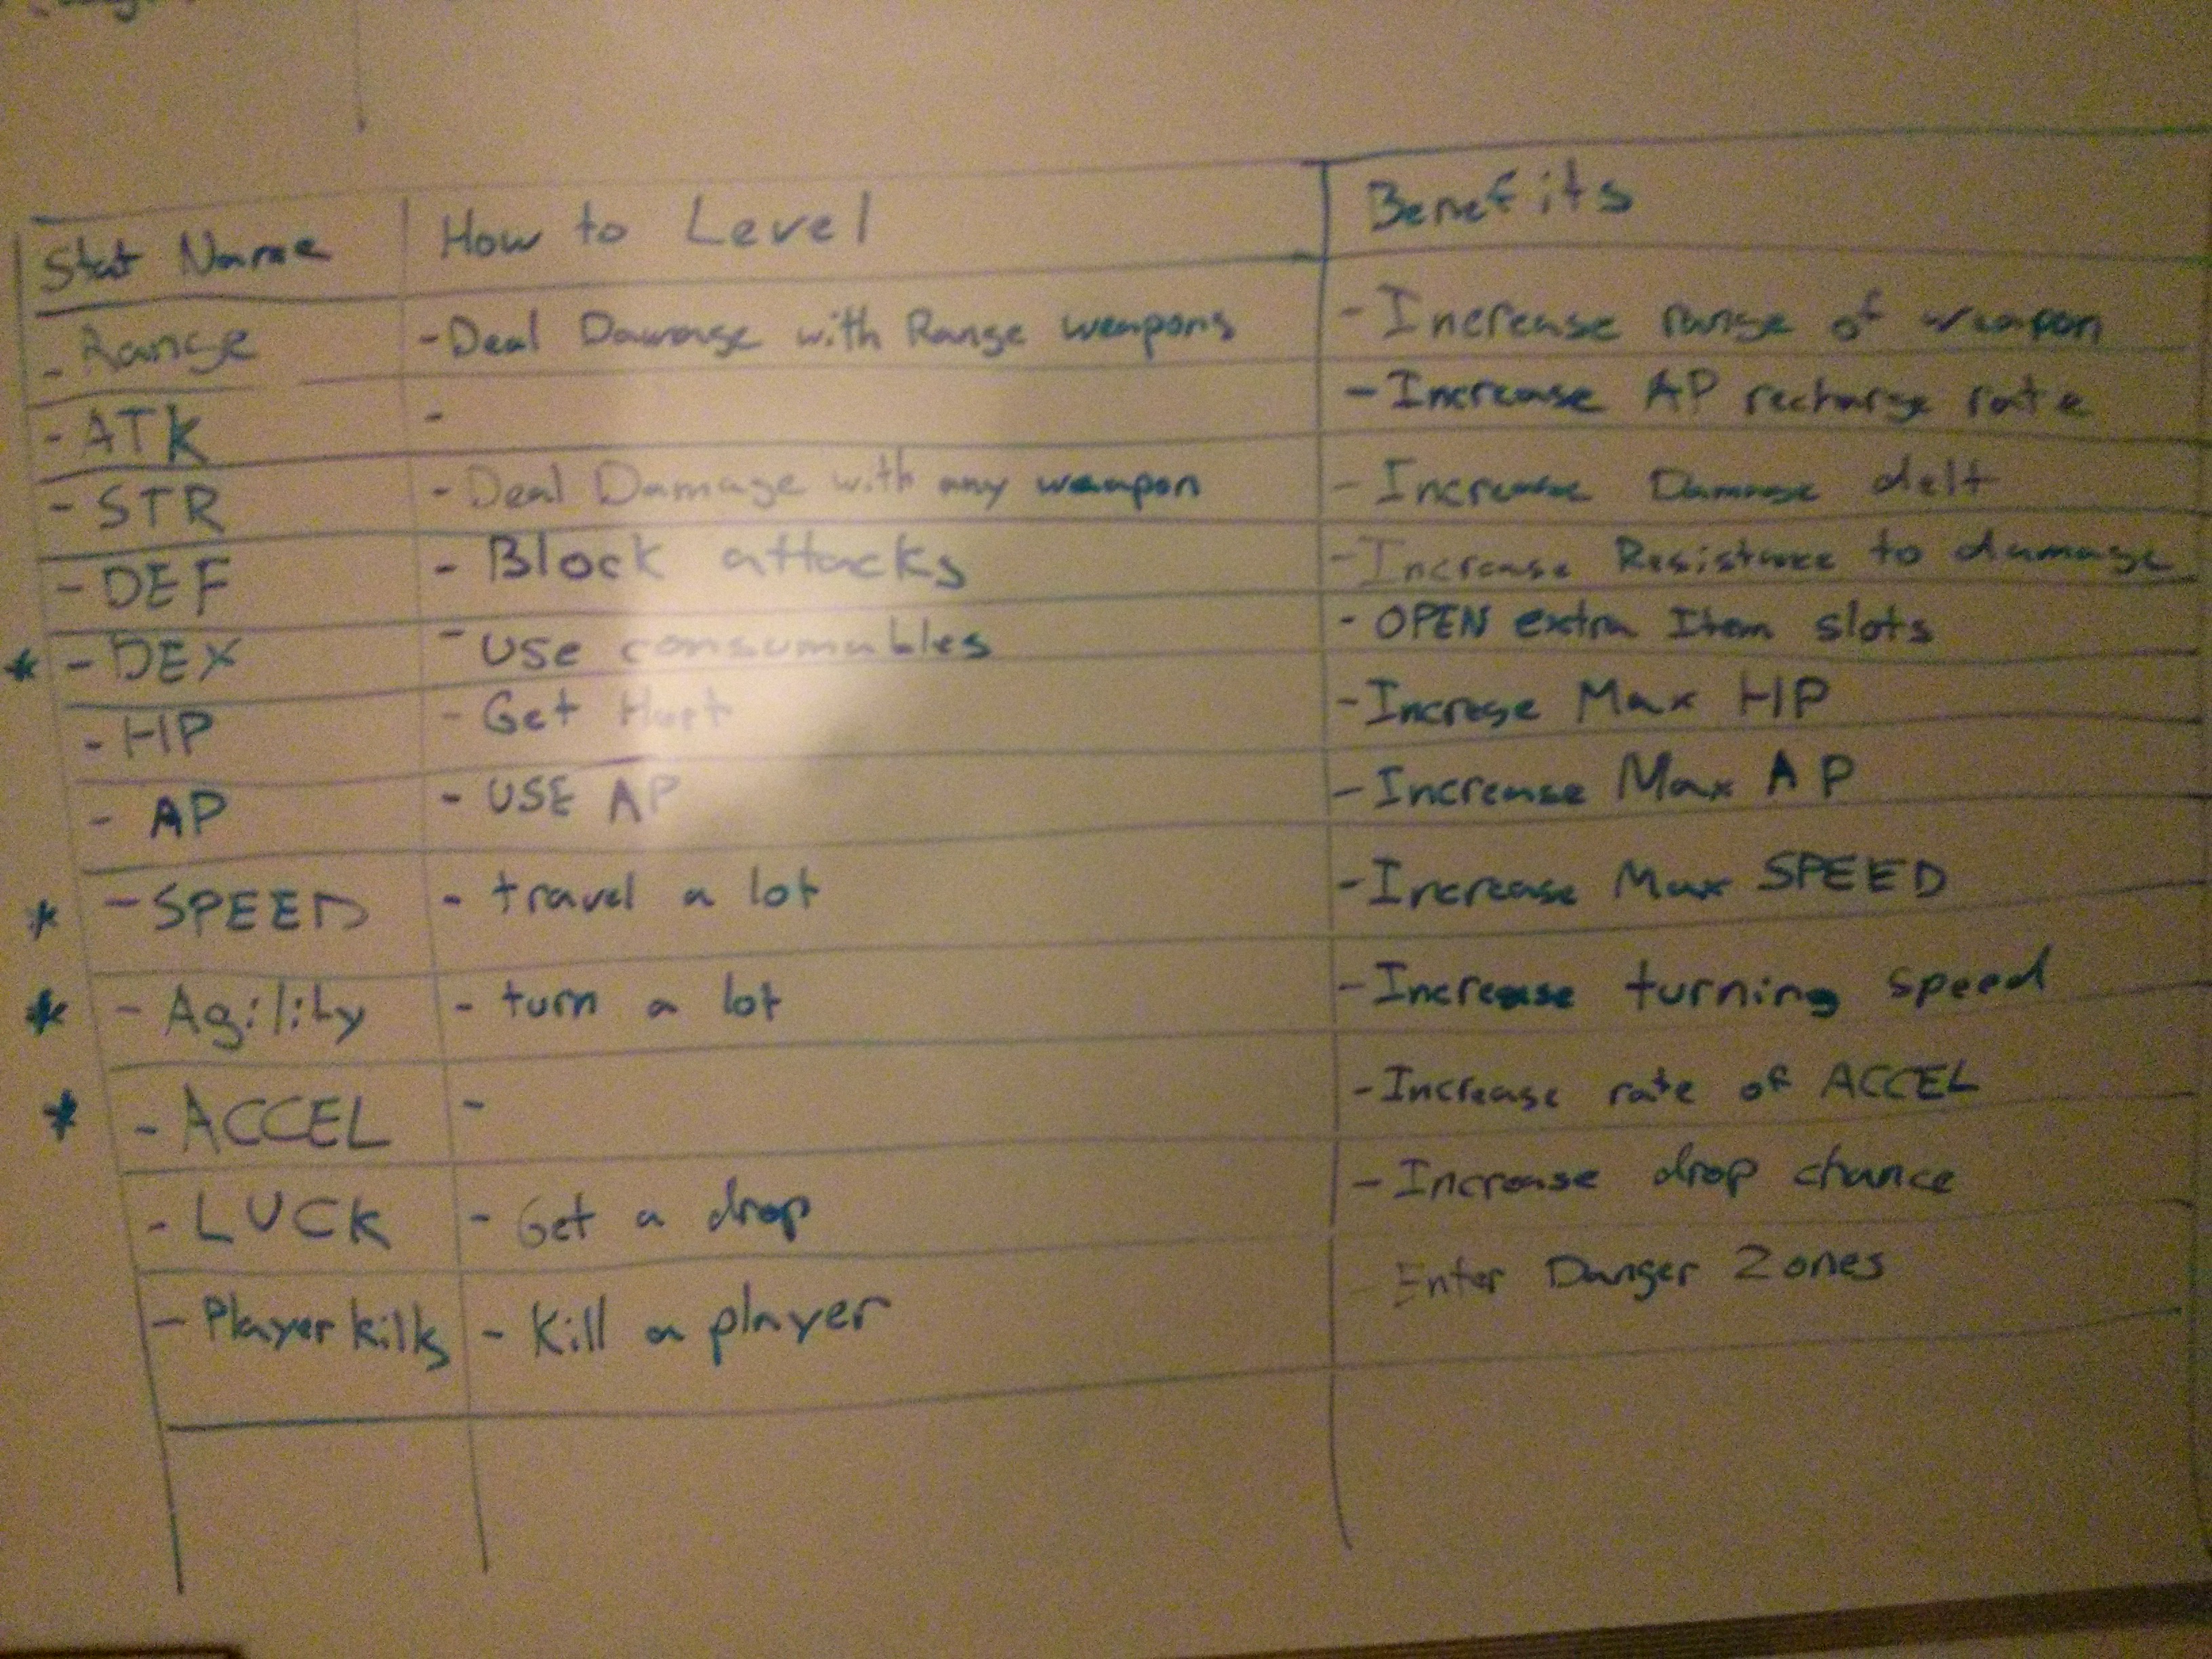 Stat Name How to Level Benefits
- Range - Deal Damage with Range weapons - Increase range of weapon
- ATK - - Increase AP recharge rate
- STR - Deal Damage with any weapon - Increase Damage delt
- DEF - Block attacks - Increase Resistance to damage
* - DEX - Use consumables - OPEN extra Item slots
- HP - Get Hurt - Increse Max HP
- AP - USE AP - Increase Max AP
* - SPEED - travel a lot - Increase Max SPEED
* - Agility - turn a lot - Increase turning speed
* - ACCEL - - Increase rate of ACCEL
- LUCK - Get a drop - Increase drop chance
- Player kills - Kill a player - Enter Danger Zones